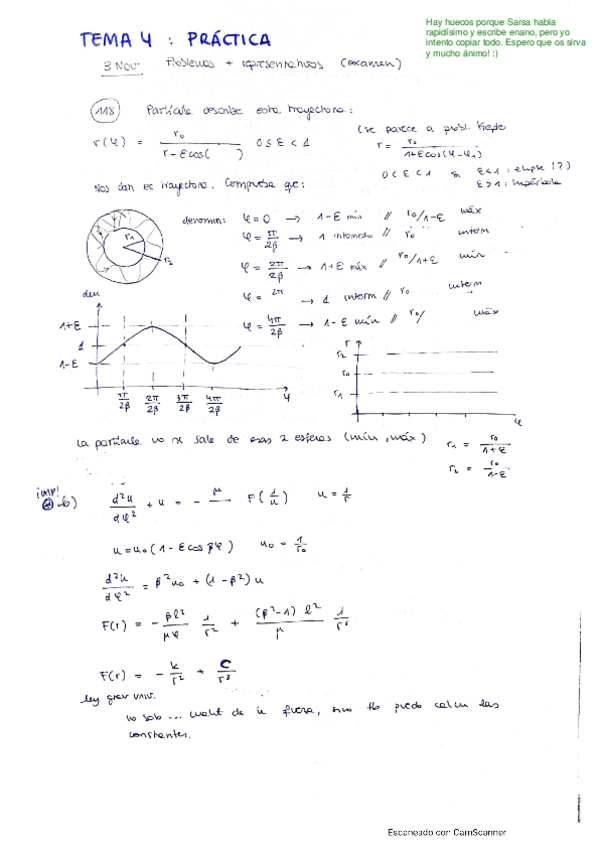 Hay huecos porque Sarsa habla
rapidísimo y escribe enano, pero yo
intento copiar todo. Espero que os sirva
y mucho ánimo! :)
TEMA 4 : PRÁCTICA
3 Nov Problemas + representativos (examen)
118 Partícula describe esta trayectoria:
r(φ) = r₀ / r - ε cos( ) 0 ≤ ε < 1
(se parece a probl. Kepler
r = r₀ / 1+εcos(φ-φ₁)
0 < ε < 1 ε<1 : elipse (?)
ε>1 : hipérbola
Nos dan ec trayectoria. Comprueba que:
r₁
r₂
denomin: φ = 0 → 1-ε mín // r₀/1-ε máx
φ = π/2β → 1 intermedio // r₀ interm
φ = 2π/2β → 1+ε máx // r₀/1+ε mín
φ = 3π → 1 interm // r₀ interm
φ = 4π/2β → 1-ε mín // r₀/ máx
den
1+ε
1
1-ε
π/2β 2π/2β 3π/2β 4π/2β φ
r
r₂
r₀
r₁
φ
La partícula no se sale de esas 2 esferas (mín, máx)
r₁ = r₀/1+ε
r₂ = r₀/1-ε
¡imp!
b) d²u/dφ² + u = - μ/ F(1/u) u = 1/r
u = u₀(1 - ε cos βφ) u₀ = 1/r₀
d²u/dφ² = β²u₀ + (1-β²)u
F(r) = - βl²/μφ 1/r² + (β²-1) l²/μ 1/r³
F(r) = - k/r² + C/r³
ley grav univ.
no solo ... cualit de la fuerza, sino tb puedo calcular las
constantes.
Escaneado con CamScanner